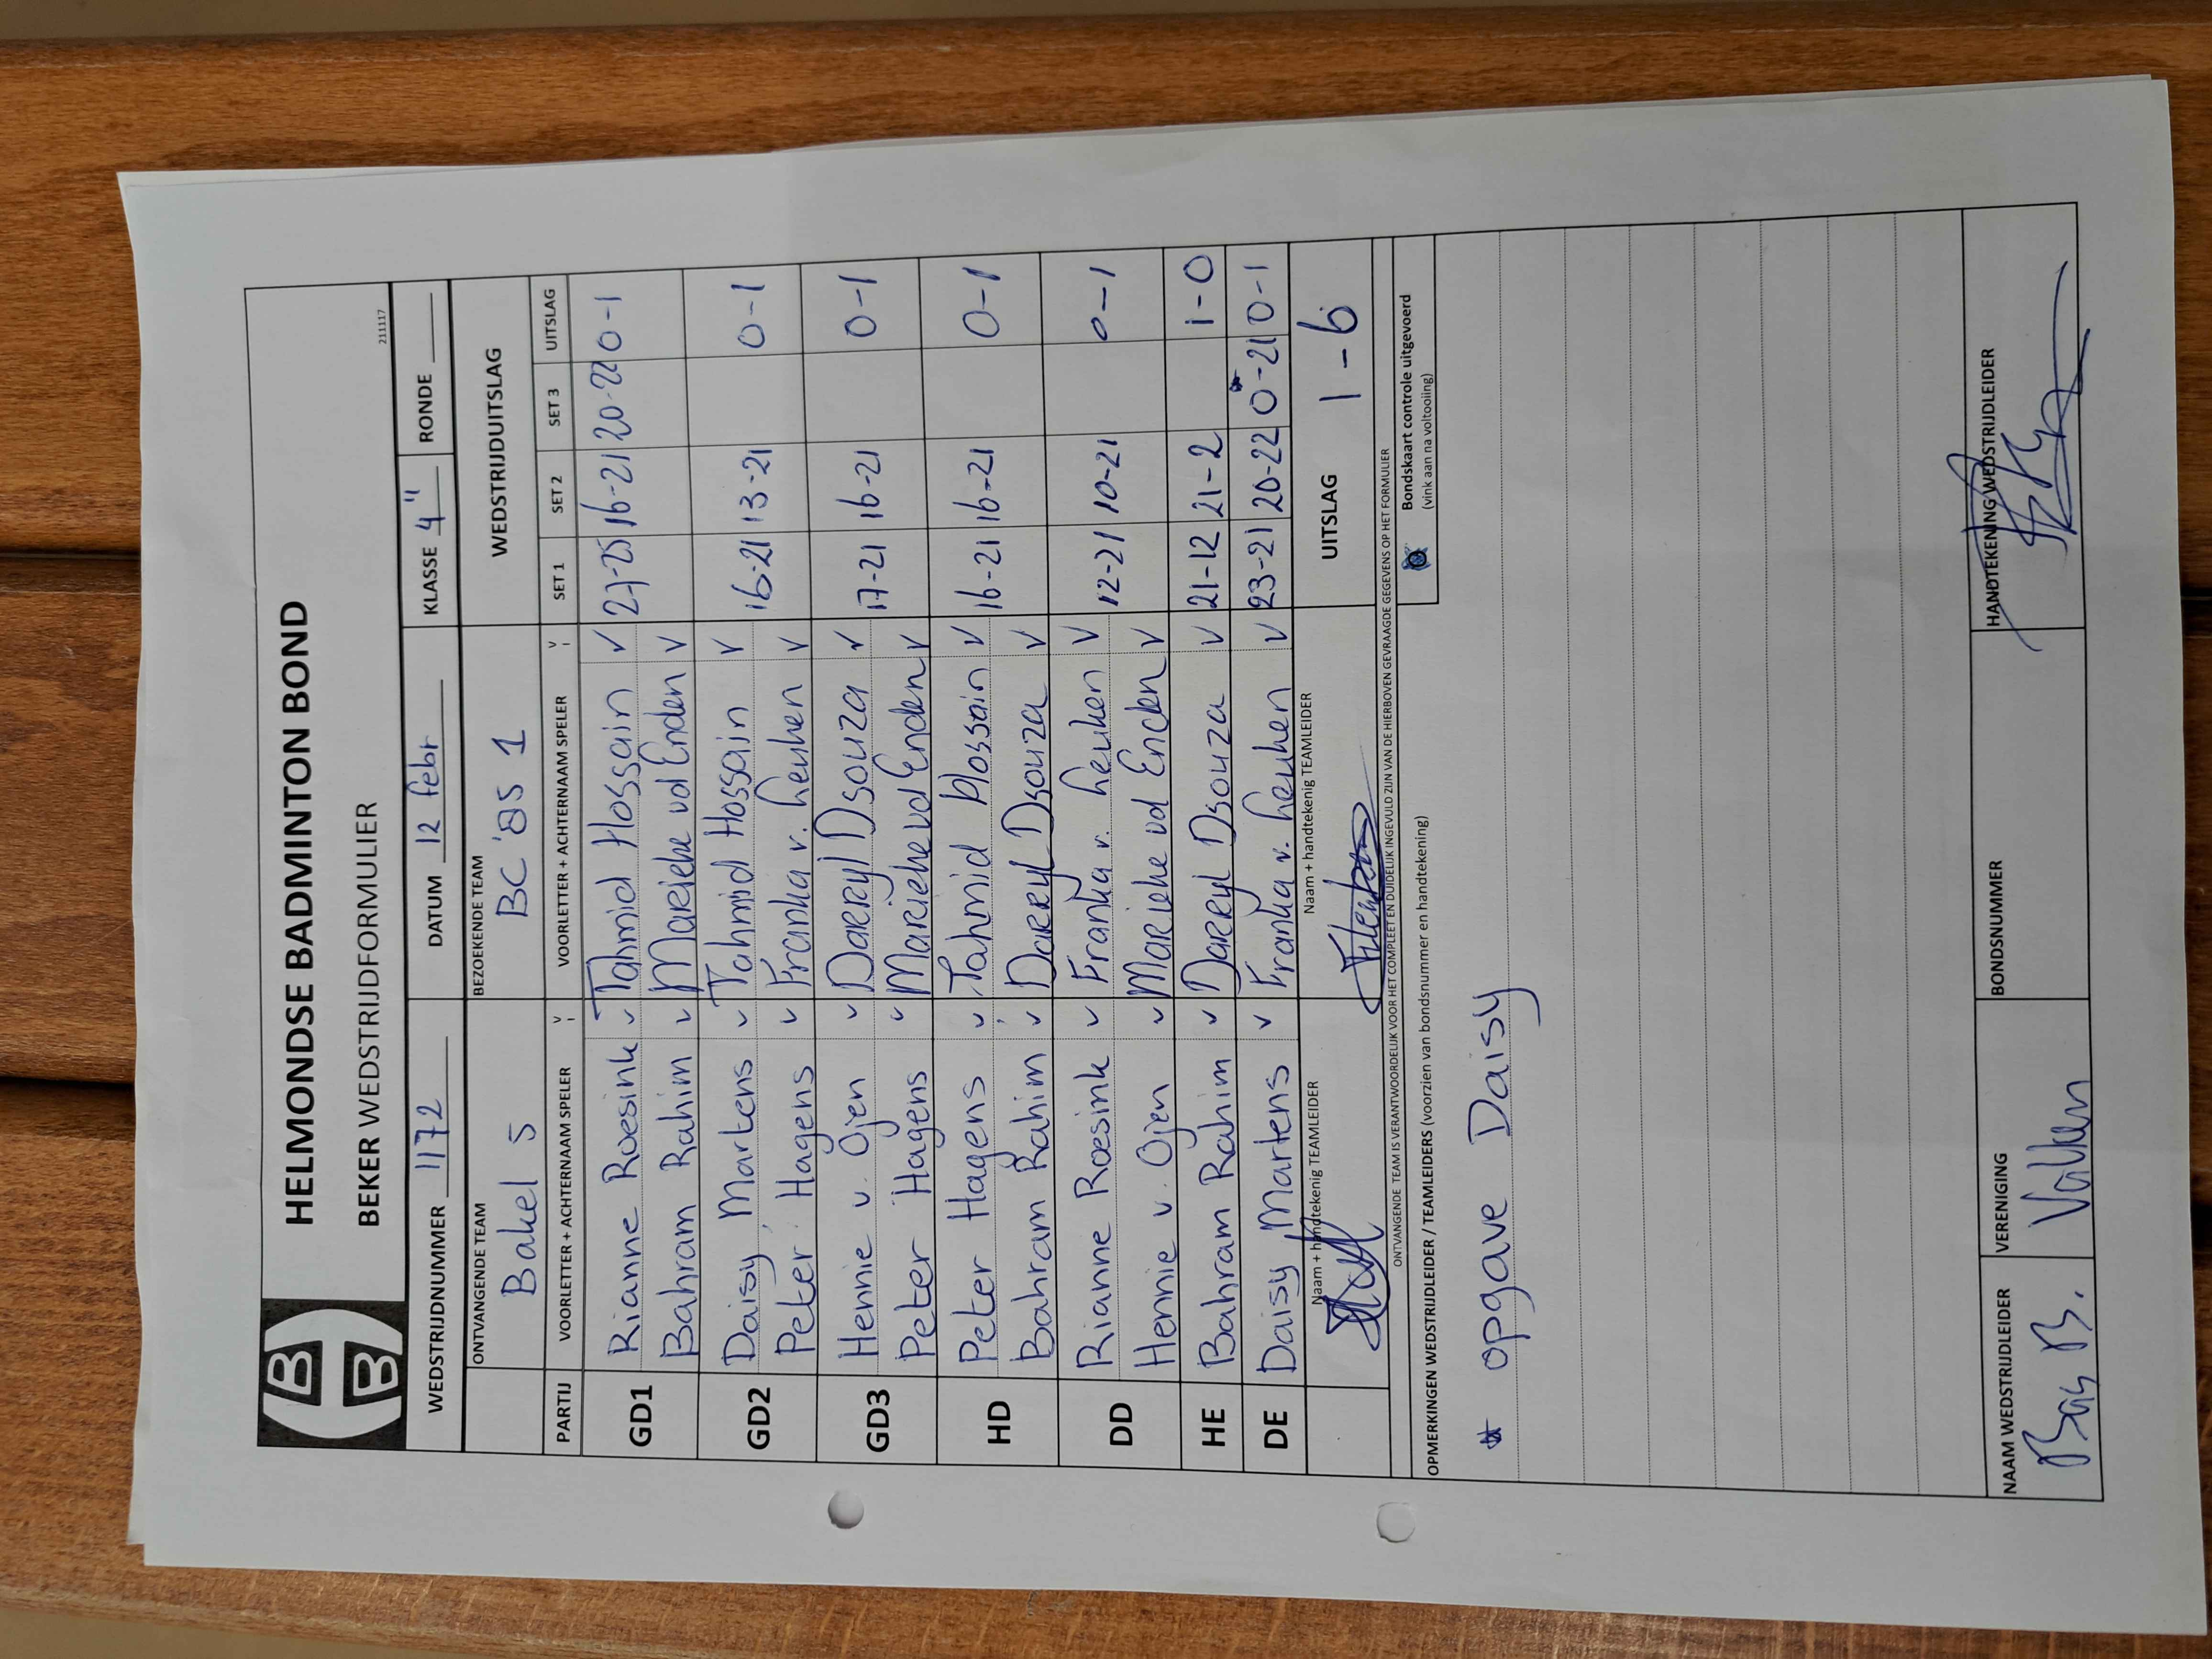 HELMONDSE BADMINTON BOND
BEKER WEDSTRIJDFORMULIER
211117
WEDSTRIJDNUMMER 1172 DATUM 12 febr KLASSE 4" RONDE
ONTVANGENDE TEAM BEZOEKENDE TEAM WEDSTRIJDUITSLAG
Bakel 5 BC '85 1
PARTIJ VOORLETTER + ACHTERNAAM SPELER V VOORLETTER + ACHTERNAAM SPELER V SET 1 SET 2 SET 3 UITSLAG
GD1 Rianne Roesink v Tahmid Hossain v 27-25 16-21 20-22 0-1
Bahram Rahim v Marieke vd Enden v
GD2 Daisy Martens v Tahmid Hossain v 16-21 13-21 0-1
Peter Hagens v Franka v. heuken v
GD3 Hennie v. Ojen v Darryl Dsouza v 17-21 16-21 0-1
Peter Hagens v Marieke vd Enden v
HD Peter Hagens v Tahmid Hossain v 16-21 16-21 0-1
Bahram Rahim v Darryl Dsouza v
DD Rianne Roesink v Franka v. heuken v 12-21 10-21 0-1
Hennie v. Ojen v Marieke vd Enden v
HE Bahram Rahim v Darryl Dsouza v 21-12 21-2 1-0
DE Daisy Martens v Franka v. heuken v 23-21 20-22 0*-21 0-1
Naam + handtekenig TEAMLEIDER Naam + handtekenig TEAMLEIDER UITSLAG 1-6
ONTVANGENDE TEAM IS VERANTWOORDELIJK VOOR HET COMPLEET EN DUIDELIJK INGEVULD ZIJN VAN DE HIERBOVEN GEVRAAGDE GEGEVENS OP HET FORMULIER
Bondskaart controle uitgevoerd
(vink aan na voltooiing)
OPMERKINGEN WEDSTRIJDLEIDER / TEAMLEIDERS (voorzien van bondsnummer en handtekening)
* opgave Daisy
NAAM WEDSTRIJDLEIDER VERENIGING BONDSNUMMER HANDTEKENING WEDSTRIJDLEIDER